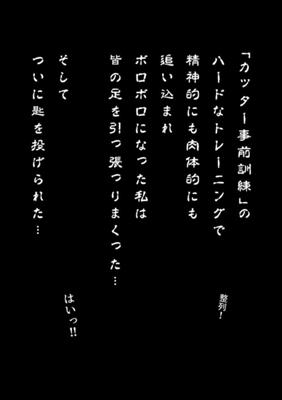 「カッター事前訓練」の
ハードなトレーニングで
精神的にも肉体的にも
追い込まれ
ボロボロになった私は
皆の足を引っ張つりまくった…
そして
ついに匙を投げられた…
整列!
はいっ!!